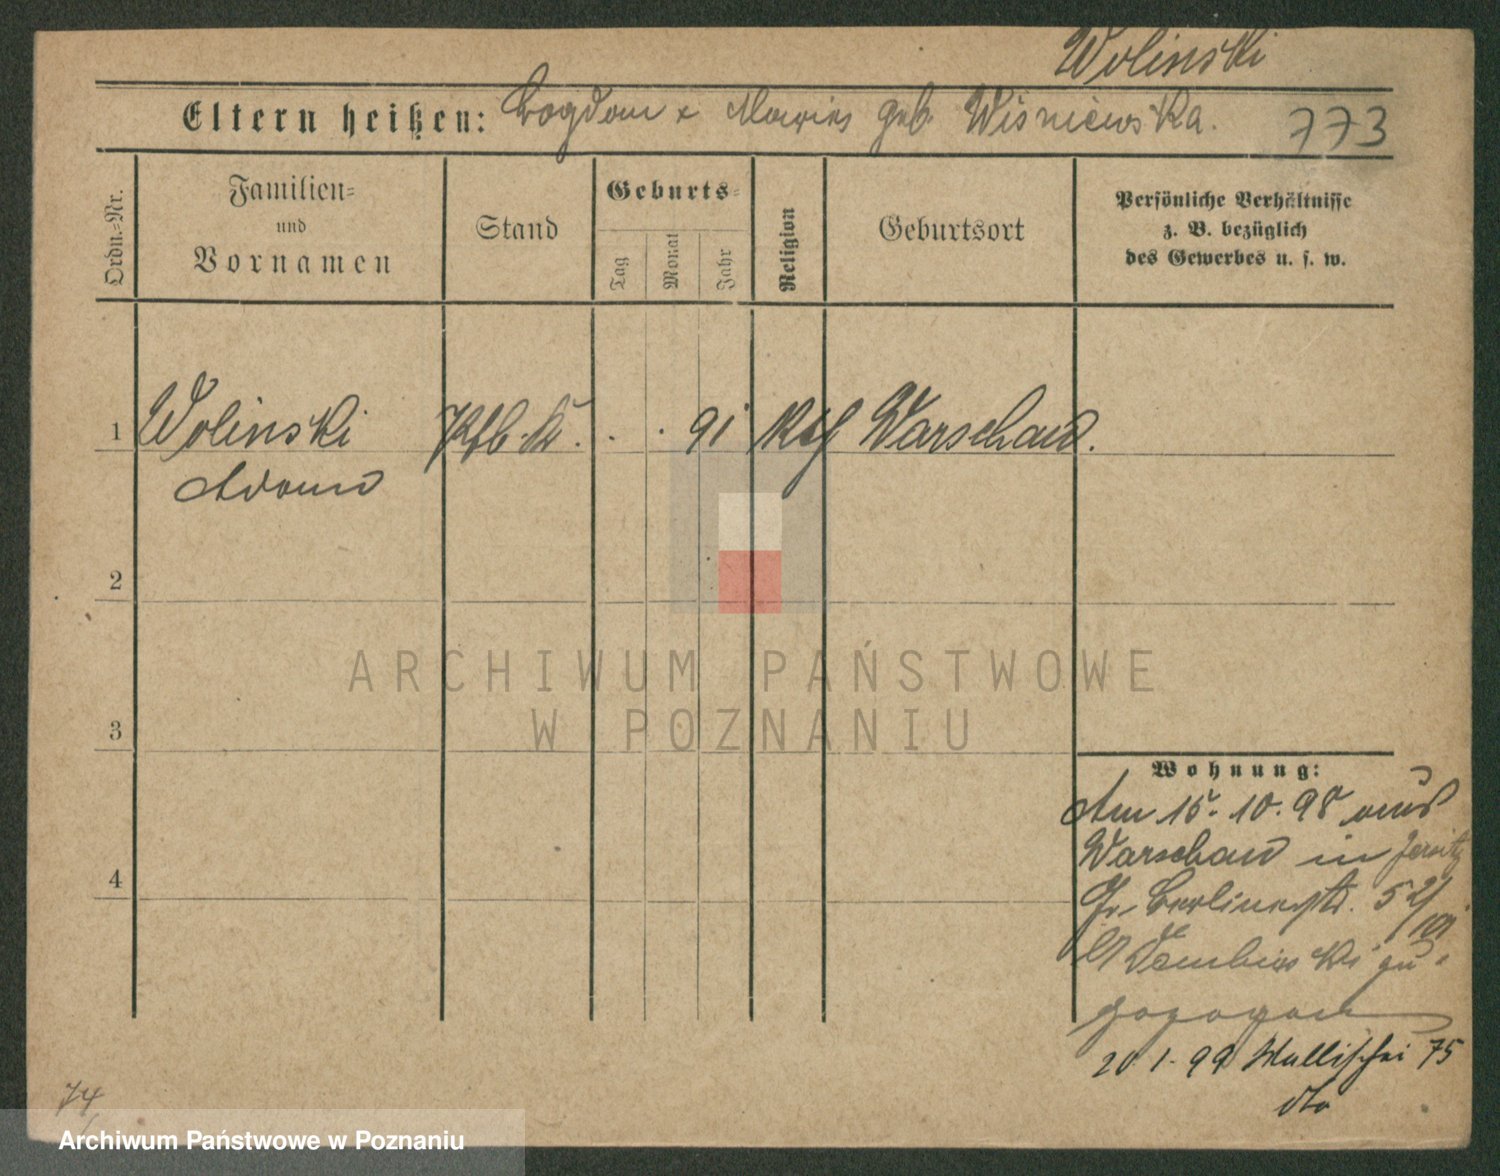 Wolinski
Eltern heißen: Bogdan & Marie geb. Wiśniewska.
773
Ordn.=Nr.
Familien=
und
Vornamen
Stand
Geburts=
Tag
Monat
Jahr
Religion
Geburtsort
Persönliche Verhältnisse
z. B. bezüglich
des Gewerbes u. s. w.
1 Wolinski . . 91 Kth Warschau.
Adam
2
ARCHIWUM PAŃSTWOWE
W POZNANIU
3
Wohnung:
Am 15. 10. 98 aus
Warschau in Jersitz
Gr. Berlinerstr. 52/
zu
gezogen
4
20 1. 99 Wallischei 75
dto
74
Archiwum Państwowe w Poznaniu